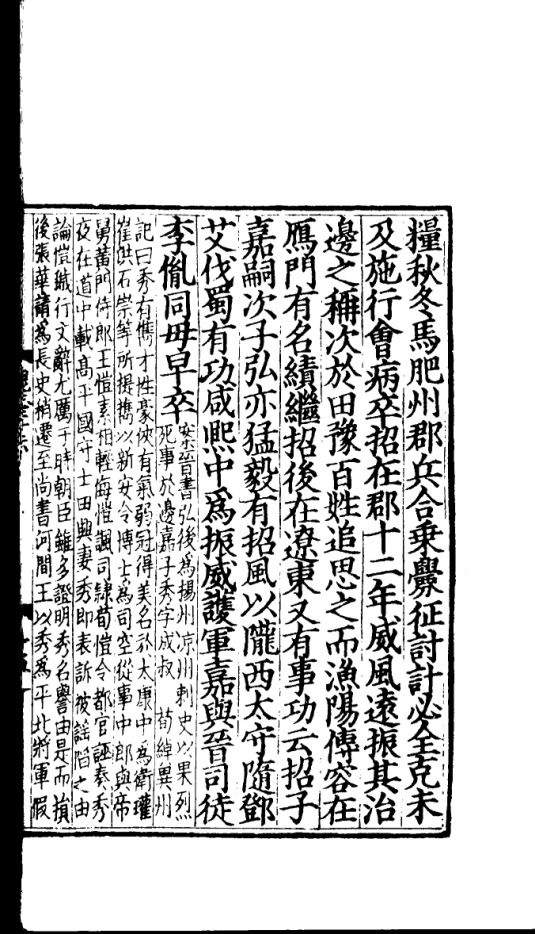 糧秋冬馬肥州郡兵合乗釁征討計必全克未
及施行會病卒招在郡十二年威風遠振其治
邊之稱次於田豫百姓追思之而漁陽傅容在
鴈門有名績繼招後在遼東又有事功云招子
嘉嗣次子弘亦猛毅有招風以隴西太守隨鄧
艾伐蜀有功咸熙中爲振威護軍嘉與晉司徒
李胤同母早卒
案晉書弘後爲揚州凉州刺史以果烈
死事於邊嘉子秀字成叔 荀綽兾州
記曰秀有儁才性豪俠有氣弱冠得美名於太康中爲衛瓘
崔洪石崇等所提攜以新安令博士爲司空從事中郎與帝
舅黃門侍郎王愷素相輕侮愷諷司隸荀愷令都官誣奏秀
夜在道中載高平國守士田興妻秀即表訴被誣陷之由
論愷穢行文辭尤厲于時朝臣雖多證明秀名譽由是而損
後張華請爲長史稍遷至尚書河間王以秀爲平北將軍假